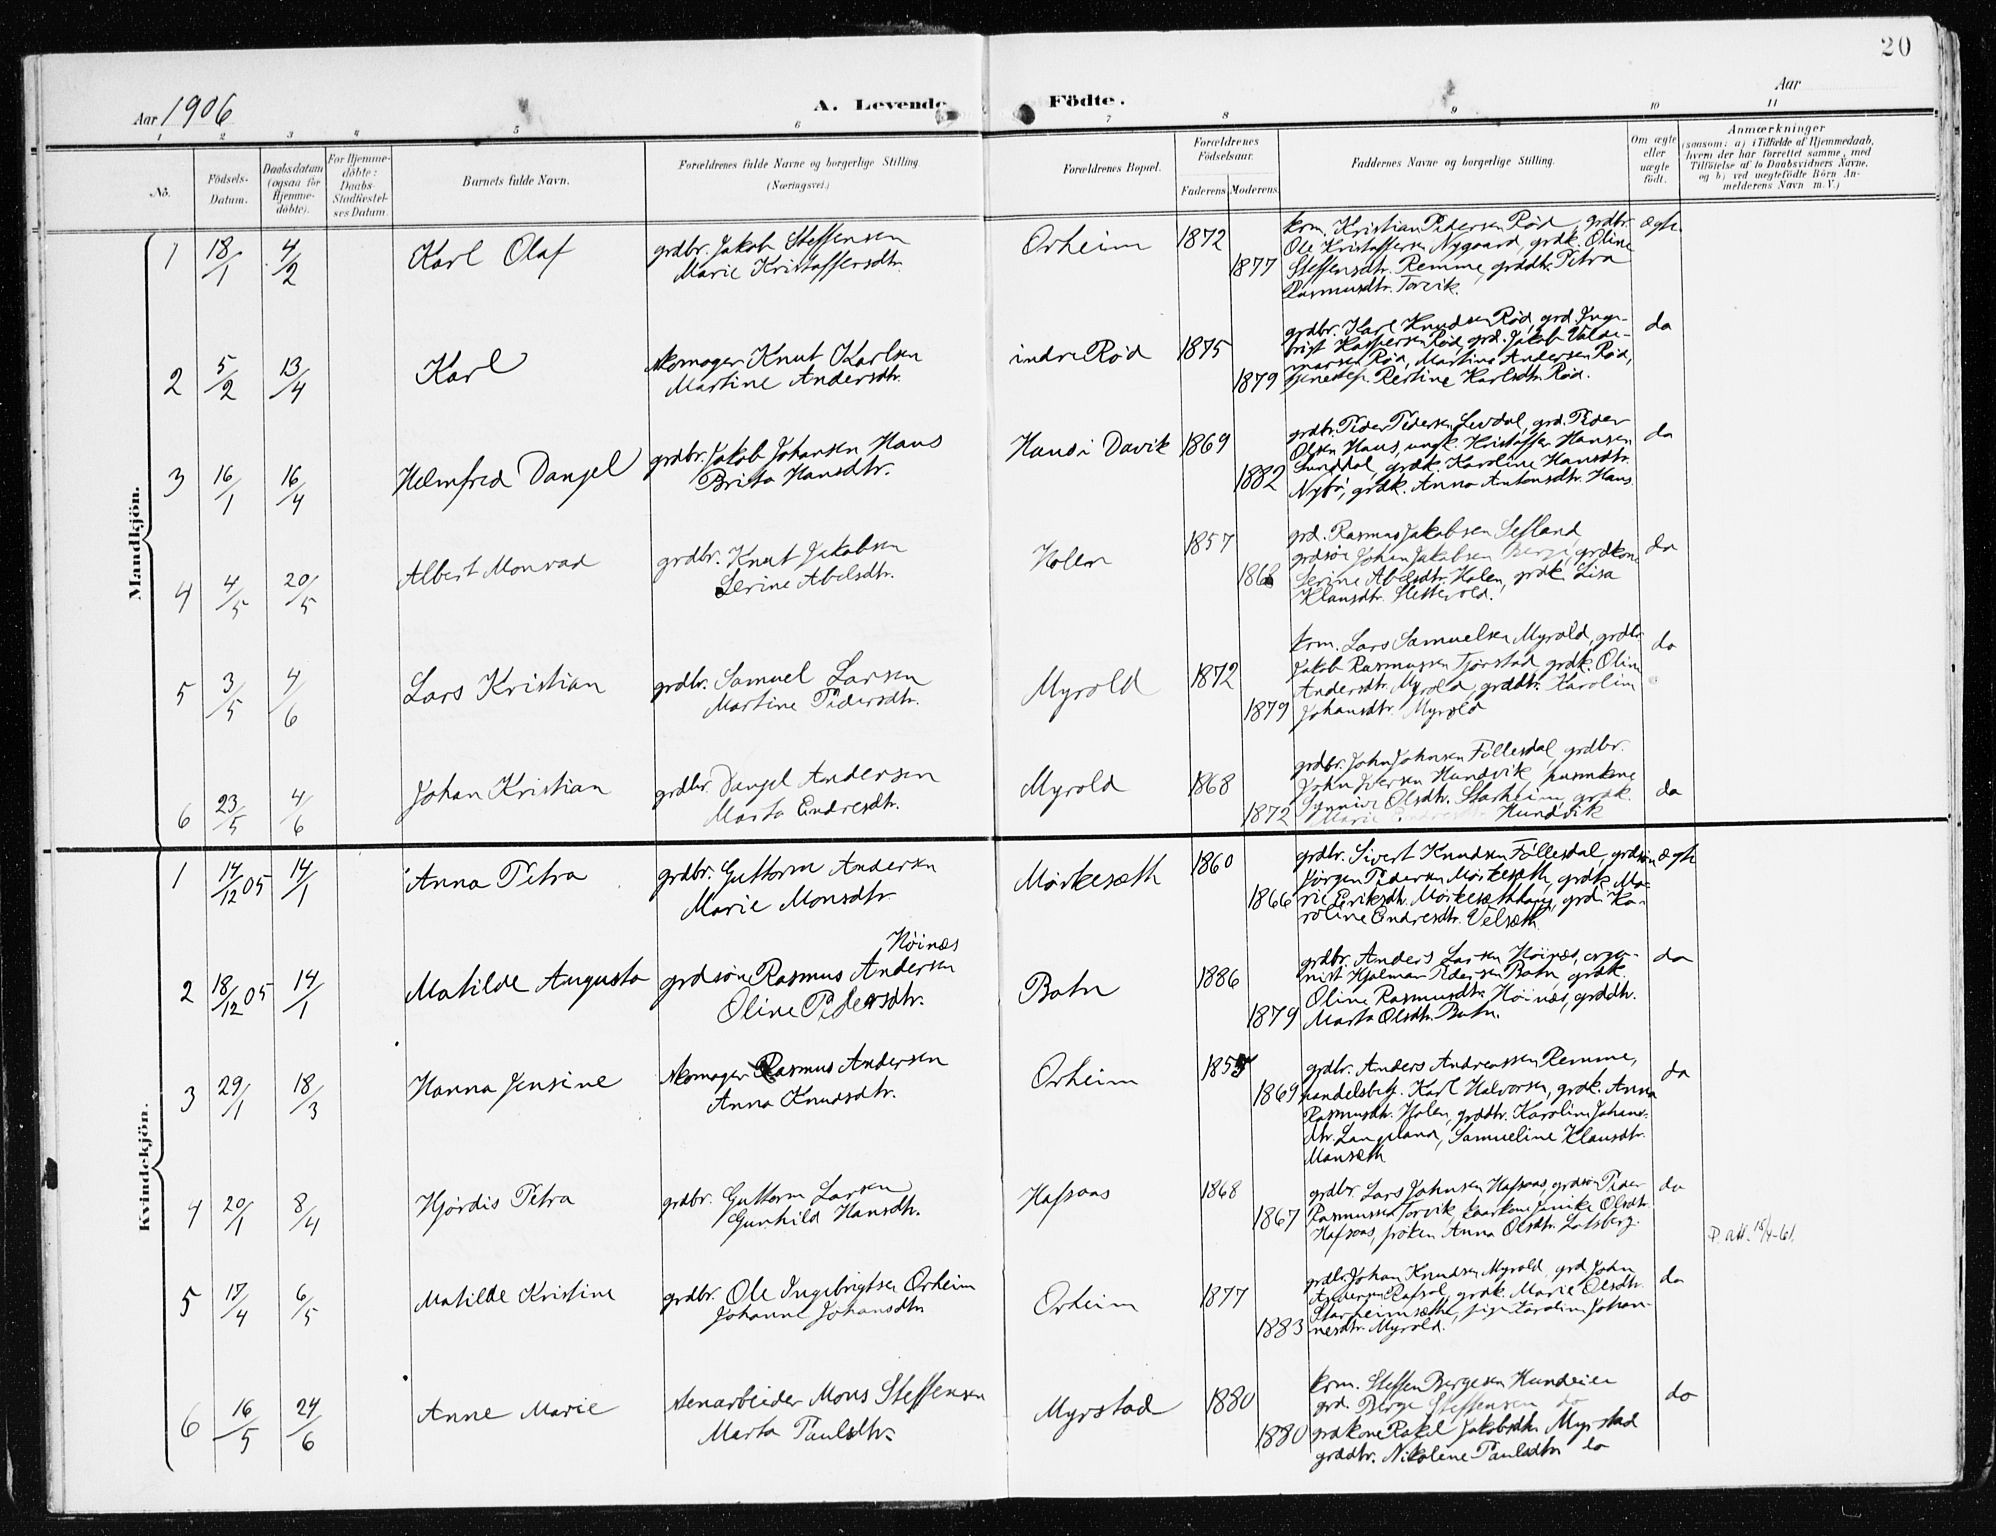 20
Aar 1906
A. Levende Födte.
Aar
1 2 3 4 5 6 7 8 9 10 11
No.
Födsels-Datum.
Daabsdatum (ogsaa for Hjemme-döbte).
For Hjemme-döbte: Daabs-Stadfæstel-ses Datum.
Barnets fulde Navn.
Forældrenes fulde Navne og borgerlige Stilling (Næringsvei.)
Forældrenes Bopæl.
Forældrenes Födselsaar.
Faderens
Moderens
Faddernes Navne og borgerlige Stilling.
Om ægte eller uægte födt.
Anmærkninger
(saasom: a) i Tilfælde af Hjemmedaab,
hvem der har forrettet samme, med
Tilföielse af to Daabsvidners Navne,
og b) ved uægtefödte Börn An-
melderens Navn m. V.)
Mandkjön.
1 18/1 4/2 Karl Olaf
grdbr. Jakob Steffensen
Marie Kristoffersdtr.
Orheim 1872 1877
krm. Kristian Pedersen Rød, grdbr.
Ole Kristoffersen Nygaard, grdk. Oline
Steffensdtr. Remme, grddtr. Petra
Rasmusdtr. Torvik.
ægte
2 5/2 13/4 Karl
skomager Knut Karlsen
Martine Andersdtr.
indre Rød 1875 1879
grdbr. Karl Knudsen Rød, grd. Inge-
brigt Kaspersen Rød, grd. Jakob Valde-
marsen Rød, Martine Andersen Rød,
Pertine Karlsdtr. Rød.
da
3 16/1 16/4 Helmfred Danjel
grdbr. Jakob Johansen Haus
Brita Hansdtr.
Haus i Davik 1869 1882
grdbr. Peder Pedersen Levdal, grd. Peder
Olsen Haus, ungk. Kristoffer Hansen
grdk. Karoline Hansdtr.
Nybø, grdk. Anna Antonsdtr. Haus
da
4 4/5 20/5 Albert Monrad
grdbr. Knut Jakobsen
Serine Abelsdtr.
Holen 1857
grd. Rasmus Jakobsen Sefland
grdsøn Johan Jakobsen Berge, grdkone
Serine Abelsdtr. Holen, grdk. Lisa
Klausdtr.
da
5 3/5 4/6 Lars Kristian
grdbr. Samuel Larsen
Martine Pedersdtr.
Myrold 1872 1879
krm. Lars Samuelsen Myrold, grdbr.
Jakob Rasmussen Tjørstad, grdk. Oline
Andersdtr. Myrold, grddtr. Karoline
Johansdtr. Myrold
da
6 23/5 4/6 Johan Kristian
grdbr. Danjel Andersen
Marta Endresdtr.
Myrold 1868 1872
grdbr. John Johnsen Föllesdal, grdbr.
John Iversen Hundvik, husmkone
Synnive Olsdtr. Starheim, grdk.
Marie Endresdtr. Hundvik
da
Kvindekjön.
1 14/12 05 14/1 Anna Petra
grdbr. Guttorm Andersen
Marie Monsdtr.
Mörkesæth 1860 1866
grdbr. Sivert Knudsen Föllesdal, grdsøn
Jörgen Pedersen Mörkesæth, grdk. Ma-
rie Eriksdtr. Mörkesæthhaug, grd. Ka-
roline Endresdtr. Velsæth
ægte
2 18/12 05 14/1 Matilde Augusta
grdsøn Rasmus Andersen Höinæs
Oline Pedersdtr.
Botn 1886 1879
grdbr. Anders Larsen Höinæs, orga-
nist Hjalmar Pedersen Botn, grdk.
Oline Rasmusdtr. Höinæs, grddtr.
Marta Olsdtr. Botn.
da
3 29/1 18/3 Hanna Jensine
skomager Rasmus Andersen
Anna Knudsdtr.
Orheim 1869
grdbr. Anders Andreassen Remme,
handelsbetj. Karl Halvorsen, grdk. Anna
Rasmusdtr. Holen, grddtr. Karoline Johans-
dtr. Langeland, Samueline Klausdtr.
Mansæth
da
4 20/1 8/4 Hjördis Petra
grdbr. Guttorm Larsen
Gunhild Hansdtr.
Hafsaas 1868 1867
grdbr. Lars Johnsen Hafsaas, grdsøn Peder
Rasmussen Torvik, Jenike Olsdtr.
Hafsaas, fröken Anna Olsdtr. Lotsberg.
da
D. att. 15/4-61.
5 17/4 6/5 Matilde Kristine
grdbr. Ole Ingebrigtsen Orheim
Johanne Johansdtr
Orheim 1877 1883
grdbr. Johan Knudsen Myrold, grd. John
Andersen grdk. Marie Olsdtr.
Starheimsæthe, pige Karoline Johan-
nesdtr. Myrold.
da
6 16/5 24/6 Anne Marie
stenarbeider Mons Steffensen
Marta Paulsdtr.
Myrstad 1880 1880
krm. Steffen Bergesen Hundeien
grd. Berge Steffensen do
grdkone Rakel Jakobsdtr Myrstad
grddtr. Nikoline Paulsdtr do
do